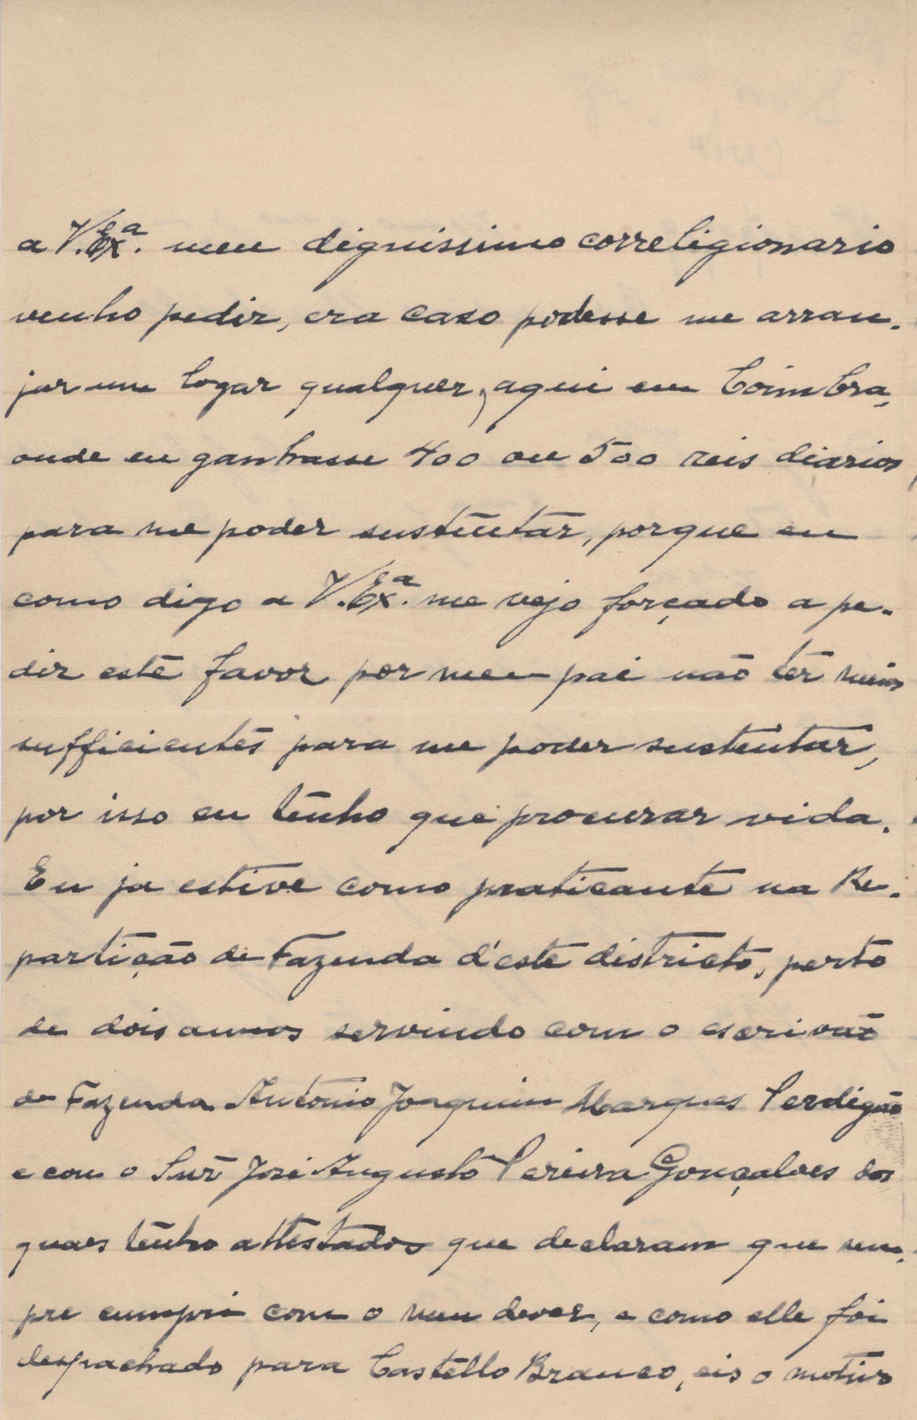 a V. Exª. meu dignissimo correligionario
venho pedir, era caso podesse me arran-
jar um logar qualquer, aqui em Coimbra,
onde eu ganhasse 400 ou 500 reis diarios
para me poder sustentar, porque eu
como digo a V. Exª. me vejo forçado a pe-
dir este favor por meu pai não ter meios
sufficientes para me poder sustentar,
por isso eu tenho que procurar vida.
Eu ja estive como praticante na Re-
partição de Fazenda d'este districto, perto
de dois annos servindo com o escrivão
de Fazenda Antonio Joaquim Marques Perdigão
e com o Snr José Augusto Pereira Gonçalves dos
quaes tenho attestados que declaram que sem-
pre cumpri com o meu dever, e como elle foi
despachado para Castello Branco, eis o motivo